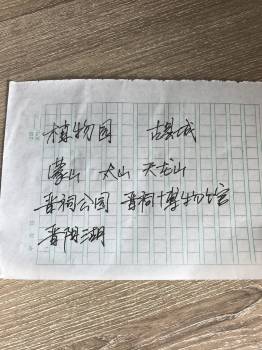 植物园 古县城
蒙山 太山 天龙山
晋祠公园 晋祠博物馆
晋阳湖